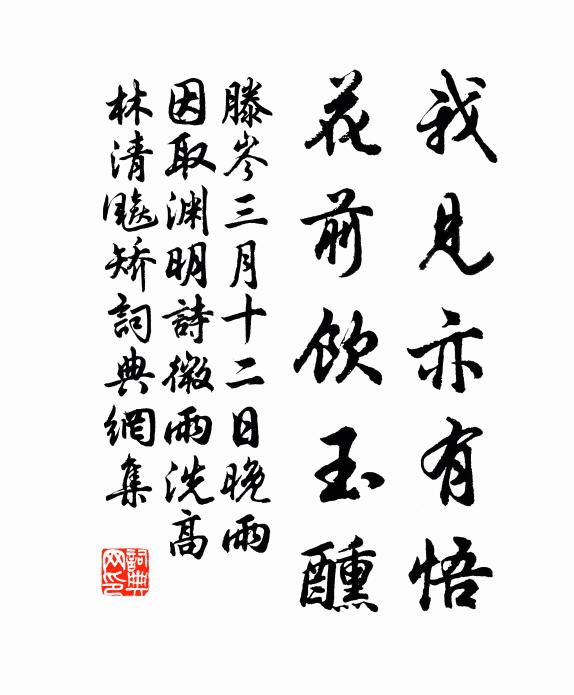 我見亦有悟
花前飲玉醺
滕岑三月十二日晚雨
因取淵明詩微雨洗高
林清飈矯詞典網集
詞典
网印